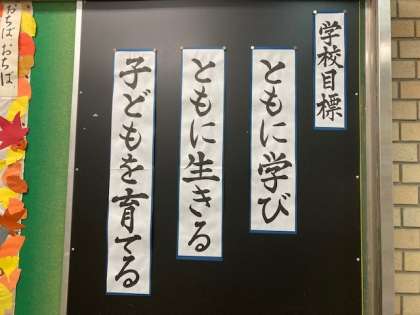 学校目標
ともに学び
ともに生きる
子どもを育てる
おちば おちば